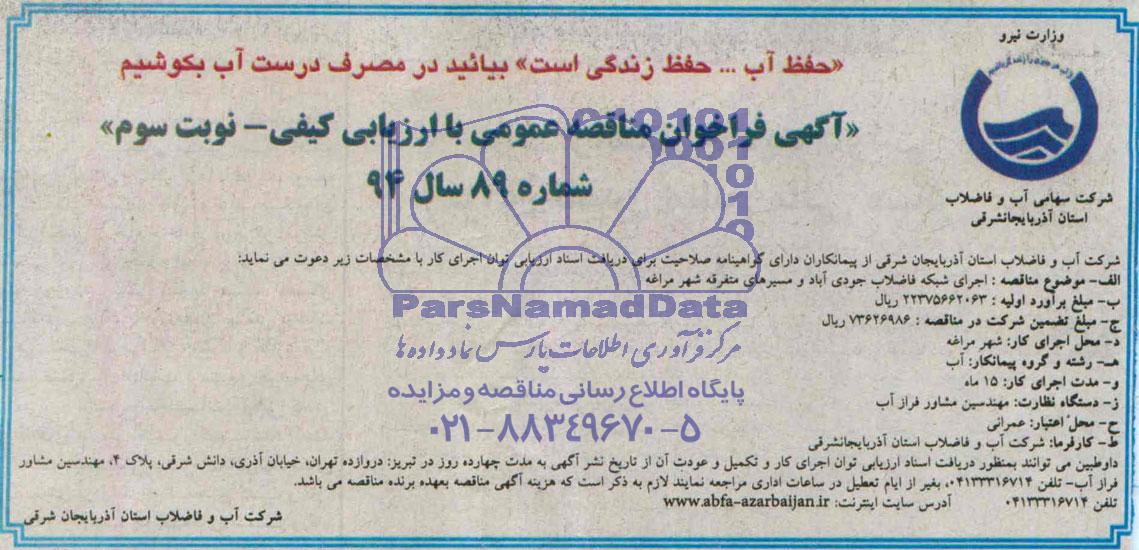 وزارت نیرو
«حفظ آب ... حفظ زندگی است» بیائید در مصرف درست آب بکوشیم
«آگهی فراخوان مناقصه عمومی با ارزیابی کیفی – نوبت سوم»
شماره ۸۹ سال ۹۴
شرکت سهامی آب و فاضلاب
استان آذربایجانشرقی
شرکت آب و فاضلاب استان آذربایجان شرقی از پیمانکاران دارای گواهینامه صلاحیت برای دریافت اسناد ارزیابی توان اجرای کار با مشخصات زیر دعوت می نماید:
الف- موضوع مناقصه : اجرای شبکه فاضلاب جودی آباد و مسیرهای متفرقه شهر مراغه
ب- مبلغ برآورد اولیه : ۲۲۳۷۵۶۶۲۰۶۳ ریال
ج- مبلغ تضمین شرکت در مناقصه : ۷۳۶۲۶۹۸۶ ریال
د- محل اجرای کار: شهر مراغه
هـ- رشته و گروه پیمانکار: آب
و- مدت اجرای کار: ۱۵ ماه
ز- دستگاه نظارت: مهندسین مشاور فراز آب
ح- محل اعتبار: عمرانی
ط- کارفرما: شرکت آب و فاضلاب استان آذربایجانشرقی
داوطلبین می توانند بمنظور دریافت اسناد ارزیابی توان اجرای کار و تکمیل و عودت آن از تاریخ نشر آگهی به مدت چهارده روز در تبریز: دروازده تهران، خیابان آذری، دانش شرقی، پلاک ۴، مهندسین مشاور
فراز آب- تلفن ۰۴۱۳۳۳۱۶۷۱۴، بغیر از ایام تعطیل در ساعات اداری مراجعه نمایند لازم به ذکر است که هزینه آگهی مناقصه بعهده برنده مناقصه می باشد.
تلفن ۰۴۱۳۳۳۱۶۷۱۴ آدرس سایت اینترنت: www.abfa-azarbaijan.ir
شرکت آب و فاضلاب استان آذربایجان شرقی
ParsNamadData
مرکز فرآوری اطلاعات پارس نماد داده ها
پایگاه اطلاع رسانی مناقصه و مزایده
۰۲۱-۸۸۳۴۹۶۷۰-۵